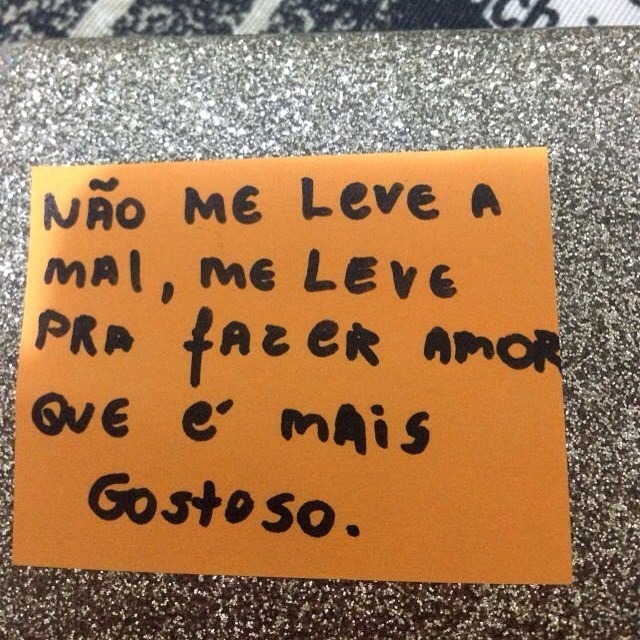 ch
NÃO ME LEVE A
MAL, ME LEVE
PRA fAZER AMOR
QUE é MAiS
GOStOSO.